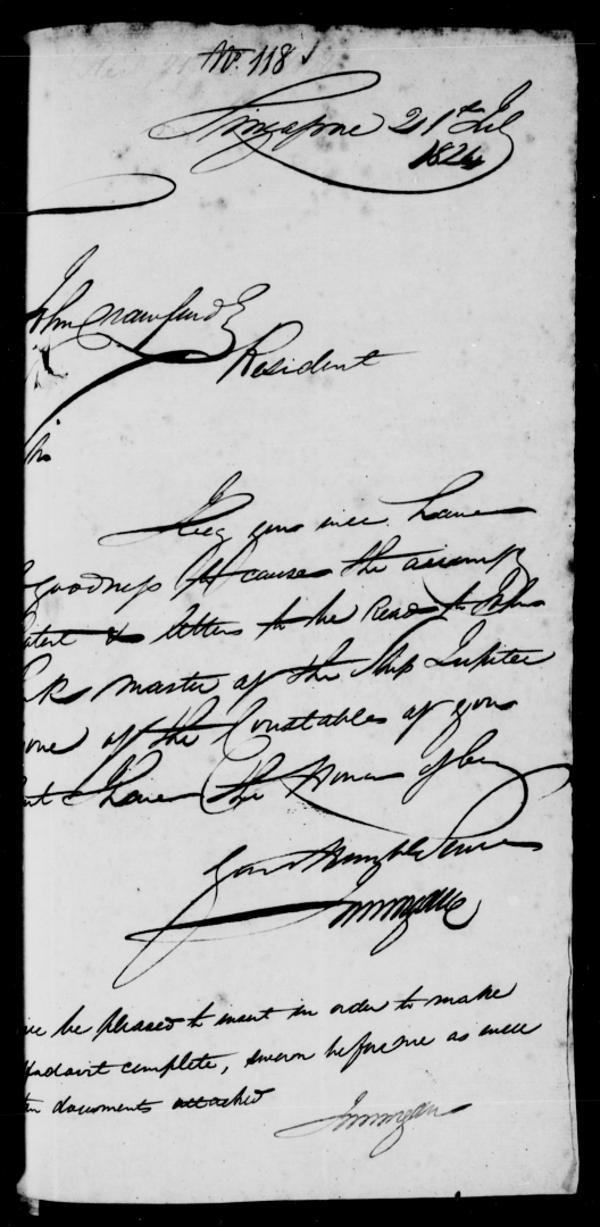 No. 118
Singapore 21st July
1824
John Crawfurd E
Resident
I beg you will have
goodness to cause the accompg
& letters to be read to John
master of the Ship Jupiter
one of the Constables of your
I have the Honor of being
Your Humble Servt
be pleased to insert in order to make
complete, sworn before me as well
documents attached